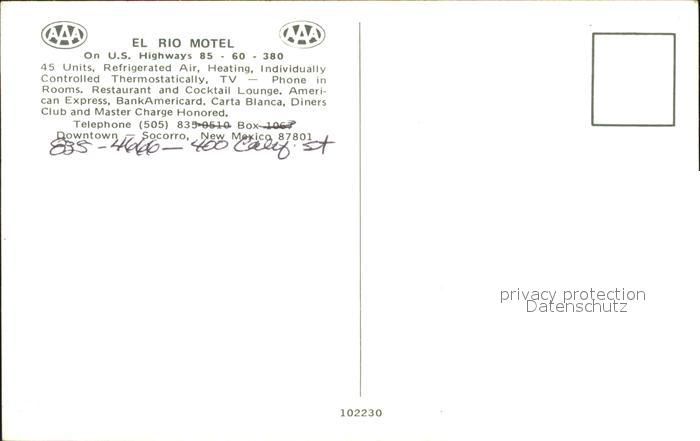 AAA AAA
EL RIO MOTEL
On U.S. Highways 85 - 60 - 380
45 Units, Refrigerated Air, Heating, Individually
Controlled Thermostatically, TV — Phone in
Rooms. Restaurant and Cocktail Lounge. Ameri-
can Express, BankAmericard, Carta Blanca, Diners
Club and Master Charge Honored.
Telephone (505) 835-0510 Box 1067
Downtown — Socorro, New Mexico 87801
835 - 4666 — 400 Calif. St
privacy protection
Datenschutz
102230